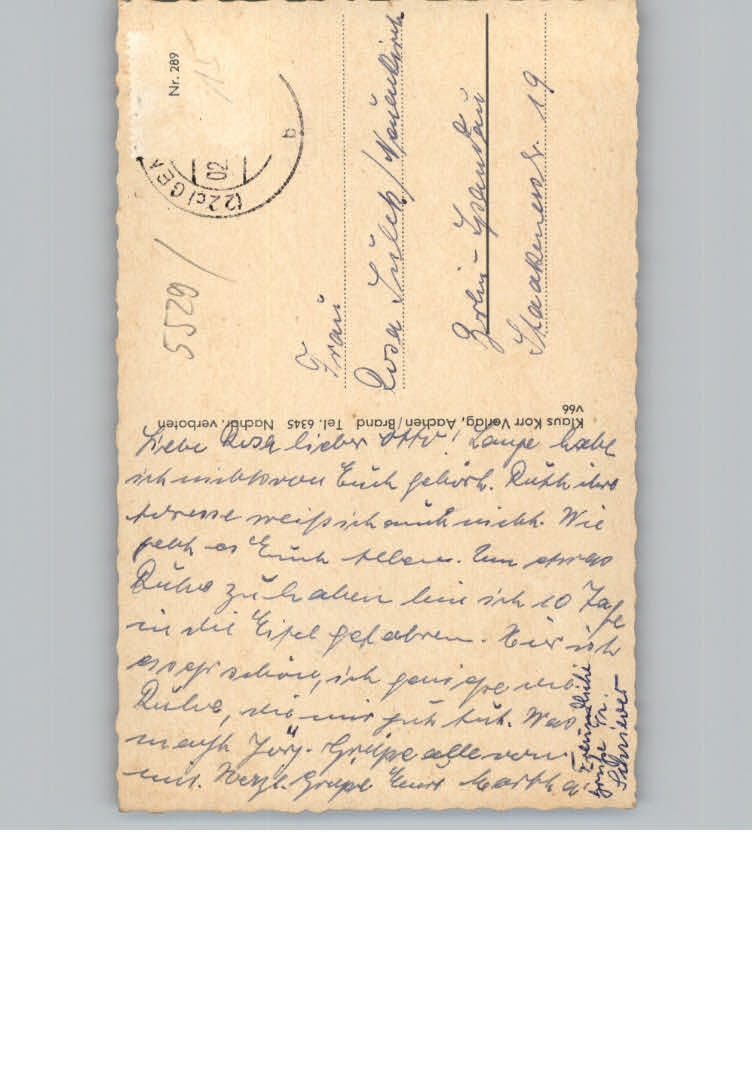 Liebe Rosa lieber Otto! Lange habe
ich nichts von Euch gehört. Ruth ihre
Adresse weiß ich auch nicht. Wie
geht es Euch allen. Um etwas
Ruhe zu haben bin ich 10 Tage
in die Eifel gefahren. Hier ist
es sehr schön, ich genieße die
Ruhe, die mir gut tut. Was
macht Jörg. Grüße alle von
mir. Herzl. Grüße Eure Martha
Freundliche
Grüße Fr.
Schriewer
Klaus Korr Verlag, Aachen/Brand Tel. 6345 Nachdr. verboten
V66
Nr. 289
115
(22c) GE
02
b
5529/
Frau
Rosa
Berlin-Spandau
Staakenerstr. 19